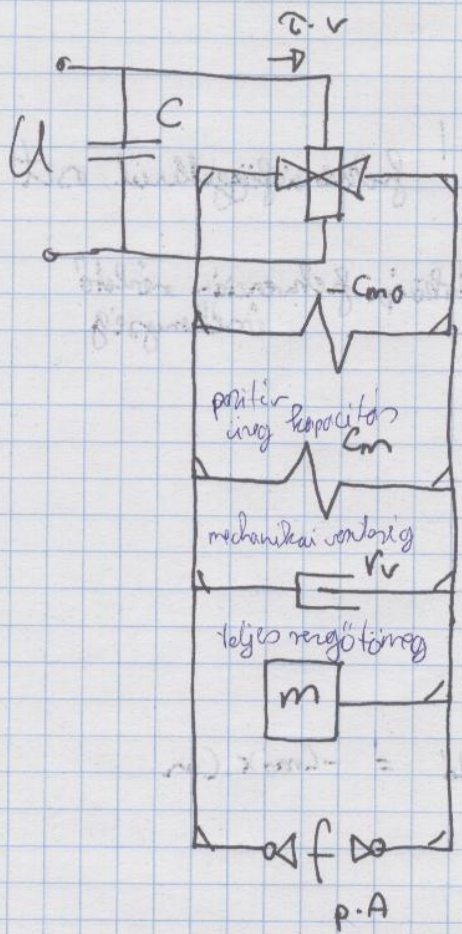 τ·v
U
C
-Cmo
pozitív
üveg kapacitás
Cm
mechanikai veszteség
rv
teljes rezgőtömeg
m
f
p·A